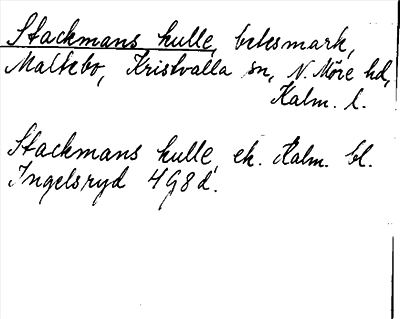 Stackmans kulle, betesmark,
Maltebo, Kristvalla sn, N. Möre hd,
Kalm. l.
Stackmans kulle, ek. Kalm. bl.
Ingelsryd 4G8d.